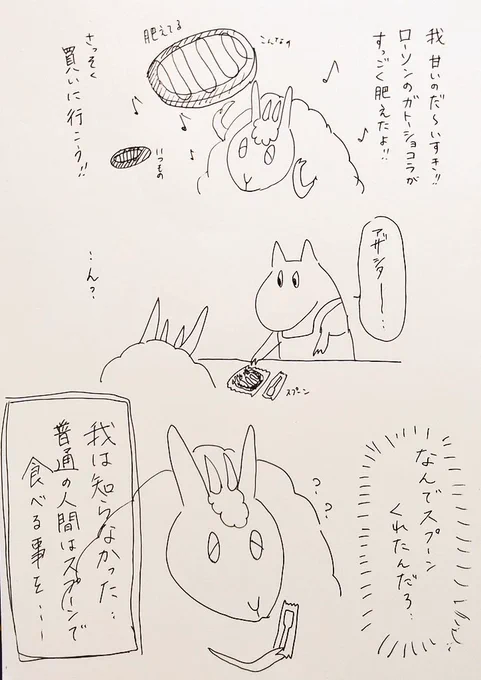 我 甘いのだ〜いすキ!!
ローソンのガトーショコラが
すっごく肥えたよ!!
こんなの
肥えてる
いつもの
さっそく
買いに行こう!!
アザシター…
スプーン
…ん?
なんでスプーン
くれたんだろ…
??
我は知らなかった…
普通の人間はスプーンで
食べる事を…